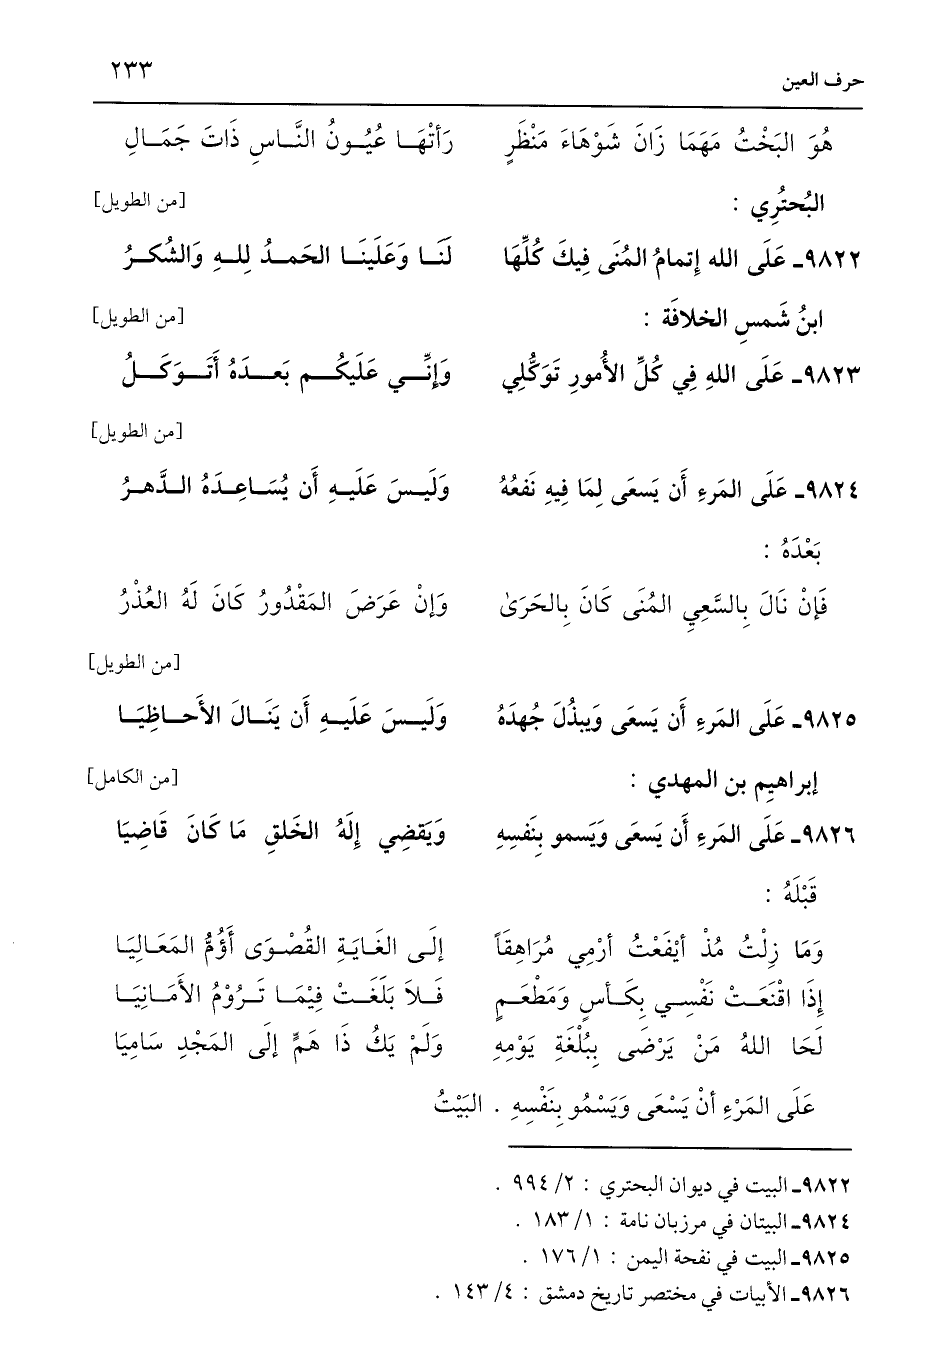 حرف العين ٢٣٣
هُوَ البَخْتُ مَهَمَا زَانَ شَوْهَاءَ مَنْظَرٍ رَأتْهَـا عُيُـونُ النَّـاسِ ذَاتَ جَمَـالِ
البُحتُرِي : [من الطويل]
٩٨٢٢ـ عَلَى الله إتمامُ المُنَى فِيكَ كُلِّهَا لَنَـا وَعَلَينَـا الحَمـدُ لِلـهِ وَالشُكـرُ
ابنُ شَمسِ الخلافَة : [من الطويل]
٩٨٢٣ـ عَلَى اللهِ فِي كُلِّ الأُمورِ تَوَكُّلِي وَإنِّـي عَلَيكُـم بَعـدَهُ أتَـوَكَـلُ
[من الطويل]
٩٨٢٤ـ عَلَى المَرءِ أَن يَسعَى لِمَا فِيهِ نَفعُهُ وَلَيـسَ عَلَيـهِ أَن يُسَـاعِـدَهُ الـدَّهـرُ
بَعْدَهُ :
فَإنْ نَالَ بِالسَّعيِ المُنَى كَانَ بِالحَرَىٰ وَإنْ عَرَضَ المَقْدُورُ كَانَ لَهُ العُذْرُ
[من الطويل]
٩٨٢٥ـ عَلَى المَرءِ أَن يَسعَى وَيبذُلَ جُهدَهُ وَلَيـسَ عَلَيـهِ أَن يَنَـالَ الأَحـاظِيَـا
إبراهيم بن المهدي : [من الكامل]
٩٨٢٦ـ عَلَى المَرءِ أَن يَسعَى وَيَسمو بِنَفسِهِ وَيَقضِي إلَهُ الخَلقِ مَا كَانَ قَاضِيَا
قَبْلَهُ :
وَمَا زِلْتُ مُذْ أيْفَعْتُ أرْمِي مُرَاهِقَاً إلَى الغَايَةِ القُصْوَى أَؤُمُّ المَعَـالِيَـا
إِذَا اقْنَعَـتْ نَفْسِـي بِكَـأسٍ وَمَطْعَـمٍ فَـلاَ بَلَغَـتْ فِيْمَـا تَـرُوْمُ الأَمَـانِيَـا
لَحَا اللهُ مَنْ يَرْضَى بِبُلْغَةِ يَوْمِهِ وَلَمْ يَكُ ذَا هَمٍّ إلَى المَجْدِ سَامِيَا
عَلَى المَرْءِ أنْ يَسْعَى وَيَسْمُو بِنَفْسِهِ . البَيْتُ
٩٨٢٢ـ البيت في ديوان البحتري : ٢/ ٩٩٤ .
٩٨٢٤ـ البيتان في مرزبان نامة : ١/ ١٨٣ .
٩٨٢٥ـ البيت في نفحة اليمن : ١/ ١٧٦ .
٩٨٢٦ـ الأبيات في مختصر تاريخ دمشق : ٤/ ١٤٣ .